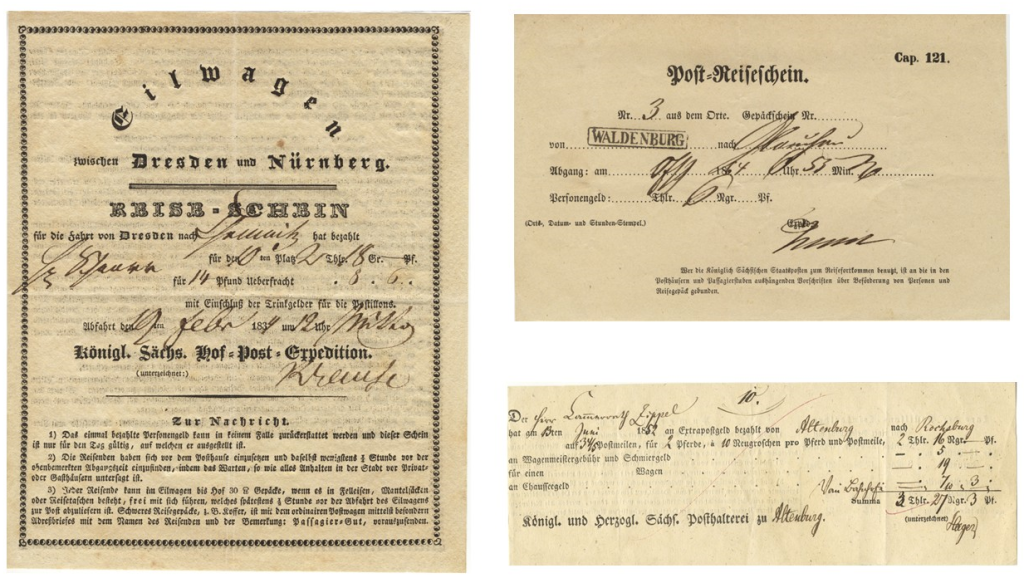 Eilwagen
zwischen Dresden und Nürnberg.
REISE-SCHEIN
für die Fahrt von Dresden nach Chemnitz hat bezahlt
für den ten Platz 2 Thlr. 8 Gr. Pf.
für 14 Pfund Ueberfracht . 3. 6.
mit Einschluß der Trinkgelder für die Postillons.
Abfahrt den 19 Febr 1834 um 12 Uhr
Königl. Sächs. Hof-Post-Expedition.
(unterzeichner:)
Zur Nachricht.
1) Das einmal bezahlte Personengeld kann in keinem Falle zurückerstattet werden und dieser Schein
ist nur für den Tag gültig, auf welchen er ausgestellt ist.
2) Die Reisenden haben sich vor dem Posthause einzufinden und daselbst wenigstens Stunde vor der
obenbemerkten Abgangszeit einzufinden, indem das Warten, so wie alles Anhalten in der Stadt vor Privat-
oder Gasthäusern untersagt ist.
3) Jeder Reisende kann im Eilwagen bis Hof 30 ℔ Gepäcke, wenn es in Felleisen, Mantelsäcken
oder Reisetaschen besteht, frei mit sich führen, welches spätestens Stunde vor der Abfahrt des Eilwagens
zur Post abzuliefern ist. Schweres Reisegepäcke, z. B. Koffer, ist mit dem ordinairen Postwagen mittelst besondern
Adreßbriefes mit dem Namen des Reisenden und der Bemerkung: Passagier-Gut, vorauszusenden.
Cap. 121.
Post-Reiseschein.
Nr. 3 aus dem Orte. Gepäckschein Nr.
von WALDENBURG nach
Abgang: am 18 54 6 Uhr 55 Min.
Personengeld: Thlr. 6 Ngr. Pf.
(Orts-, Datum- und Stunden-Stempel.)
Wer die Königlich Sächsischen Staatsposten zum Reisefortkommen benutzt, ist an die in den
Posthäusern und Passagierstuben aushängenden Vorschriften über Beförderung von Personen und
Reisegepäck gebunden.
10.
Der Herr Kammerrath Zippel
hat am Juni 1852 an Extrapostgeld bezahlt von Altenburg nach Rochsburg
auf Postmeilen, für 2 Pferde, à 10 Neugroschen pro Pferd und Postmeile, 2 Thlr. 16 Ngr. Pf.
an Wagenmeistergebühr und Schmiergeld — 5 —
für einen Wagen — 19 —
an Chausseegeld
Summa 3 Thlr. 27 Ngr. 3 Pf.
Königl. und Herzogl. Sächs. Posthalterei zu Altenburg.
(unterzeichner)